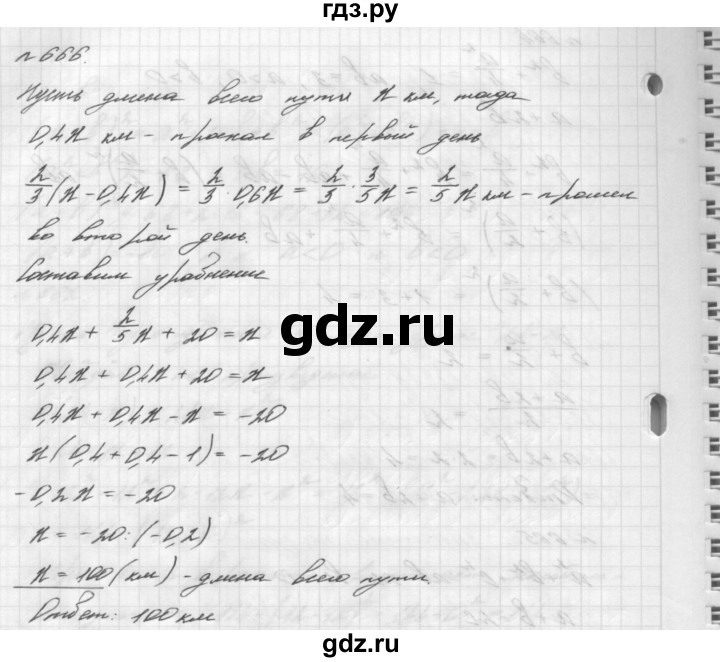 гдз.ру
№666.
Пусть длина всего пути x км, тогда
0,4x км – проехал в первый день
2/3(x – 0,4x) = 2/3 · 0,6x = 2/3 · 3/5x = 2/5x км –
во второй день.
Составим уравнение
0,4x + 2/5x + 20 = x
0,4x + 0,4x + 20 = x
0,4x + 0,4x – x = –20
x(0,4 + 0,4 – 1) = –20
–0,2x = –20
x = –20 : (–0,2)
x = 100 (км) – длина всего пути.
Ответ: 100 км
gdz.ru
gdz.ru